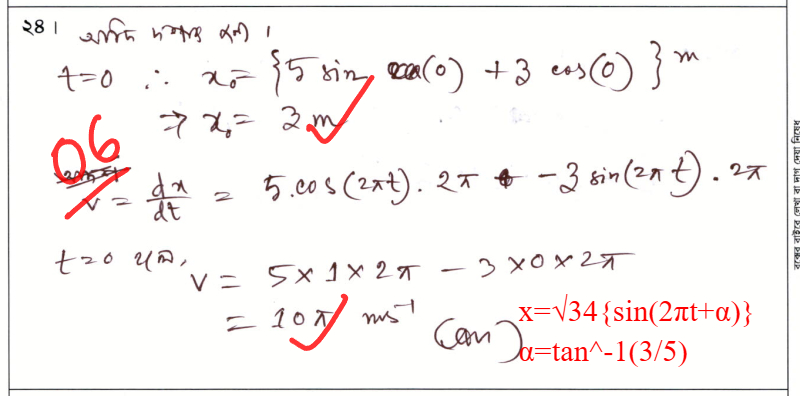 ২৪। আদি দশায় হলে।
t=0 ∴ x₀= {5 sin (0) + 3 cos(0)} m
⇒ x₀= 3 m
06
v = dx/dt = 5.cos(2πt). 2π - 3 sin(2πt). 2π
t=0 হলে, v = 5×1×2π - 3×0×2π
= 10π ms⁻¹ (Ans)
x=√34{sin(2πt+α)}
α=tan^-1(3/5)
রক্সের বাইরে লেখা বা দাগ দেয়া নিষেধ